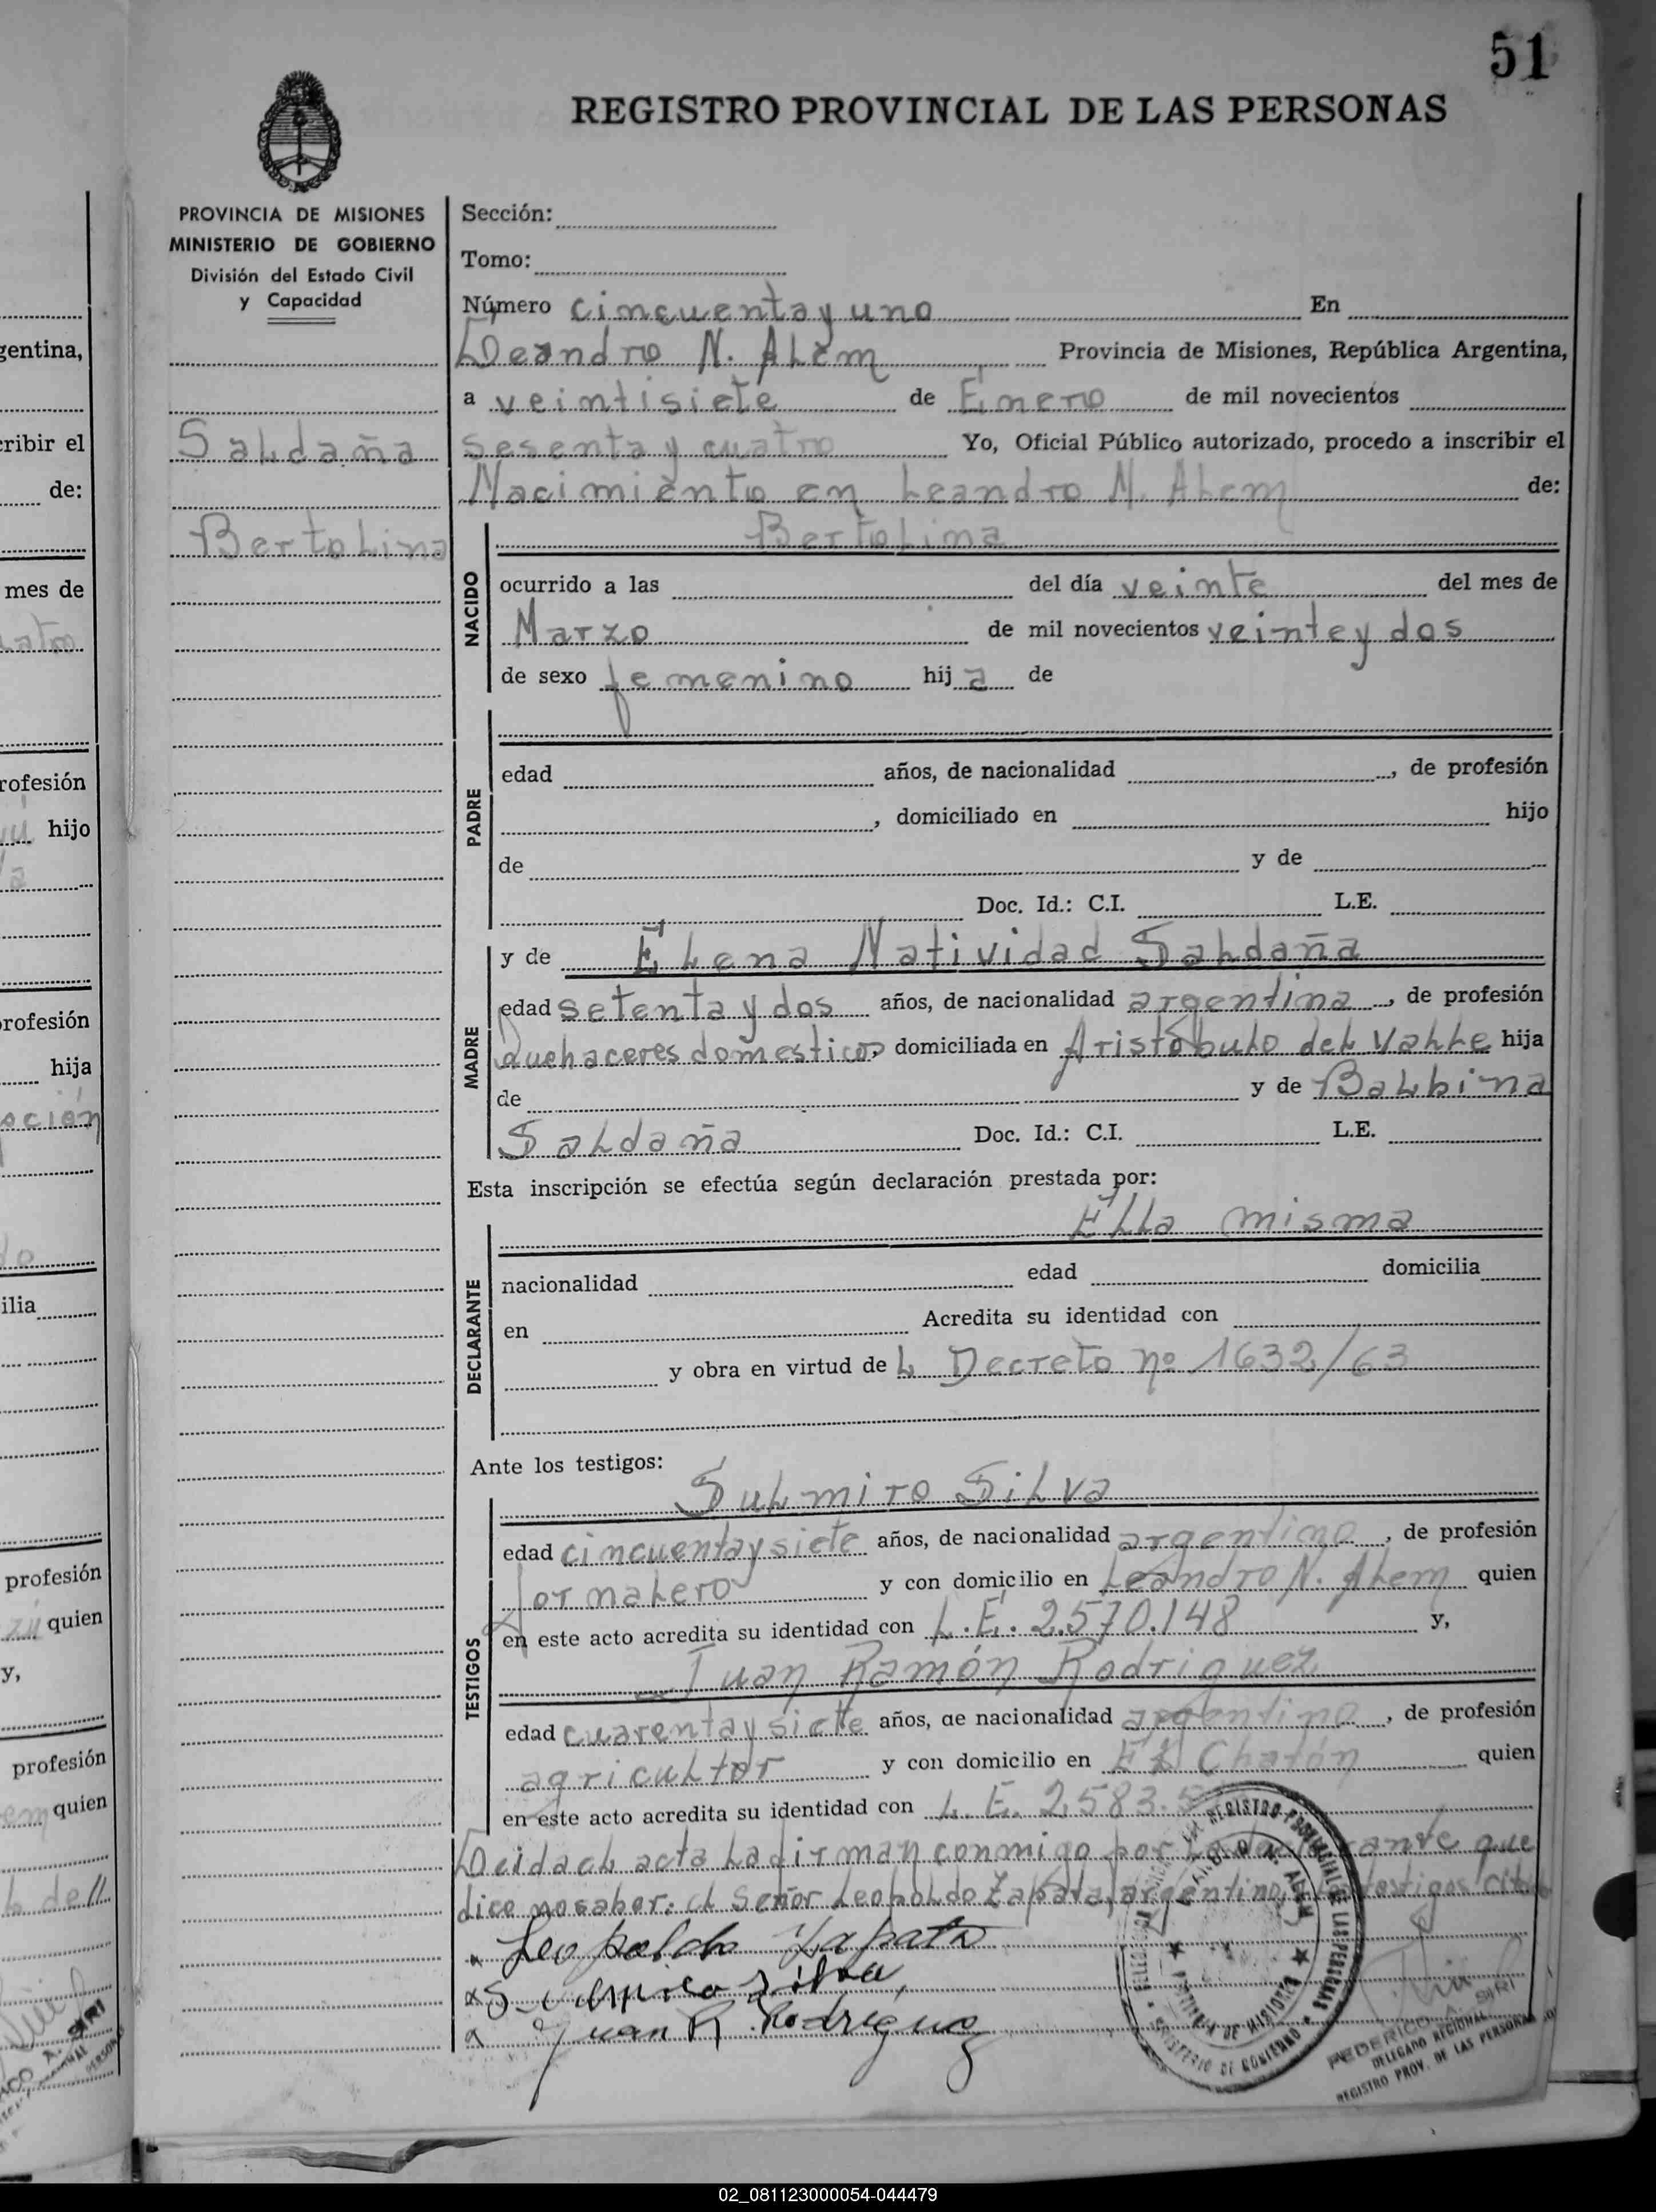 51
REGISTRO PROVINCIAL DE LAS PERSONAS
PROVINCIA DE MISIONES
MINISTERIO DE GOBIERNO
División del Estado Civil
y Capacidad
Saldaña
Bertolina
Sección:
Tomo:
Número cincuenta y uno En
Leandro N. Alem Provincia de Misiones, República Argentina,
a veintisiete de Enero de mil novecientos
sesenta y cuatro Yo, Oficial Público autorizado, procedo a inscribir el
Nacimiento en Leandro N. Alem de:
NACIDO
Bertolina
ocurrido a las del día veinte del mes de
Marzo de mil novecientos veinte y dos
de sexo femenino hija de
PADRE
edad años, de nacionalidad , de profesión
, domiciliado en hijo
de y de
Doc. Id.: C.I. L.E.
MADRE
y de Elena Natividad Saldaña
edad setenta y dos años, de nacionalidad argentina, de profesión
Quehaceres domesticos, domiciliada en Aristobulo del Valle hija
de y de Balbina
Saldaña Doc. Id.: C.I. L.E.
Esta inscripción se efectúa según declaración prestada por:
DECLARANTE
Ella misma
nacionalidad edad domicilia
en Acredita su identidad con
y obra en virtud del Decreto nº 1632/63
Ante los testigos:
TESTIGOS
Sulmiro Silva
edad cincuenta y siete años, de nacionalidad argentino, de profesión
Jornalero y con domicilio en Leandro N. Alem quien
en este acto acredita su identidad con L.E. 2.570.148 y,
Juan Ramón Rodriguez
edad cuarenta y siete años, de nacionalidad argentino, de profesión
agricultor y con domicilio en El Chatón quien
en este acto acredita su identidad con L.E. 2.583.
Leida el acta la firman conmigo por la declarante que
dice no saber: el Señor Leopoldo Zapata, argentino, testigos
Leopoldo Zapata
Silva
Juan R. Rodríguez
REGISTRO PROVINCIAL DE LAS PERSONAS
MINISTERIO DE GOBIERNO
FEDERICO A. SIRI
DELEGADO REGIONAL
REGISTRO PROV. DE LAS PERSONAS
gentina,
cribir el
de:
mes de
rofesión
hijo
profesión
hija
ilia
profesión
quien
y,
profesión
quien
02_081123000054-044479